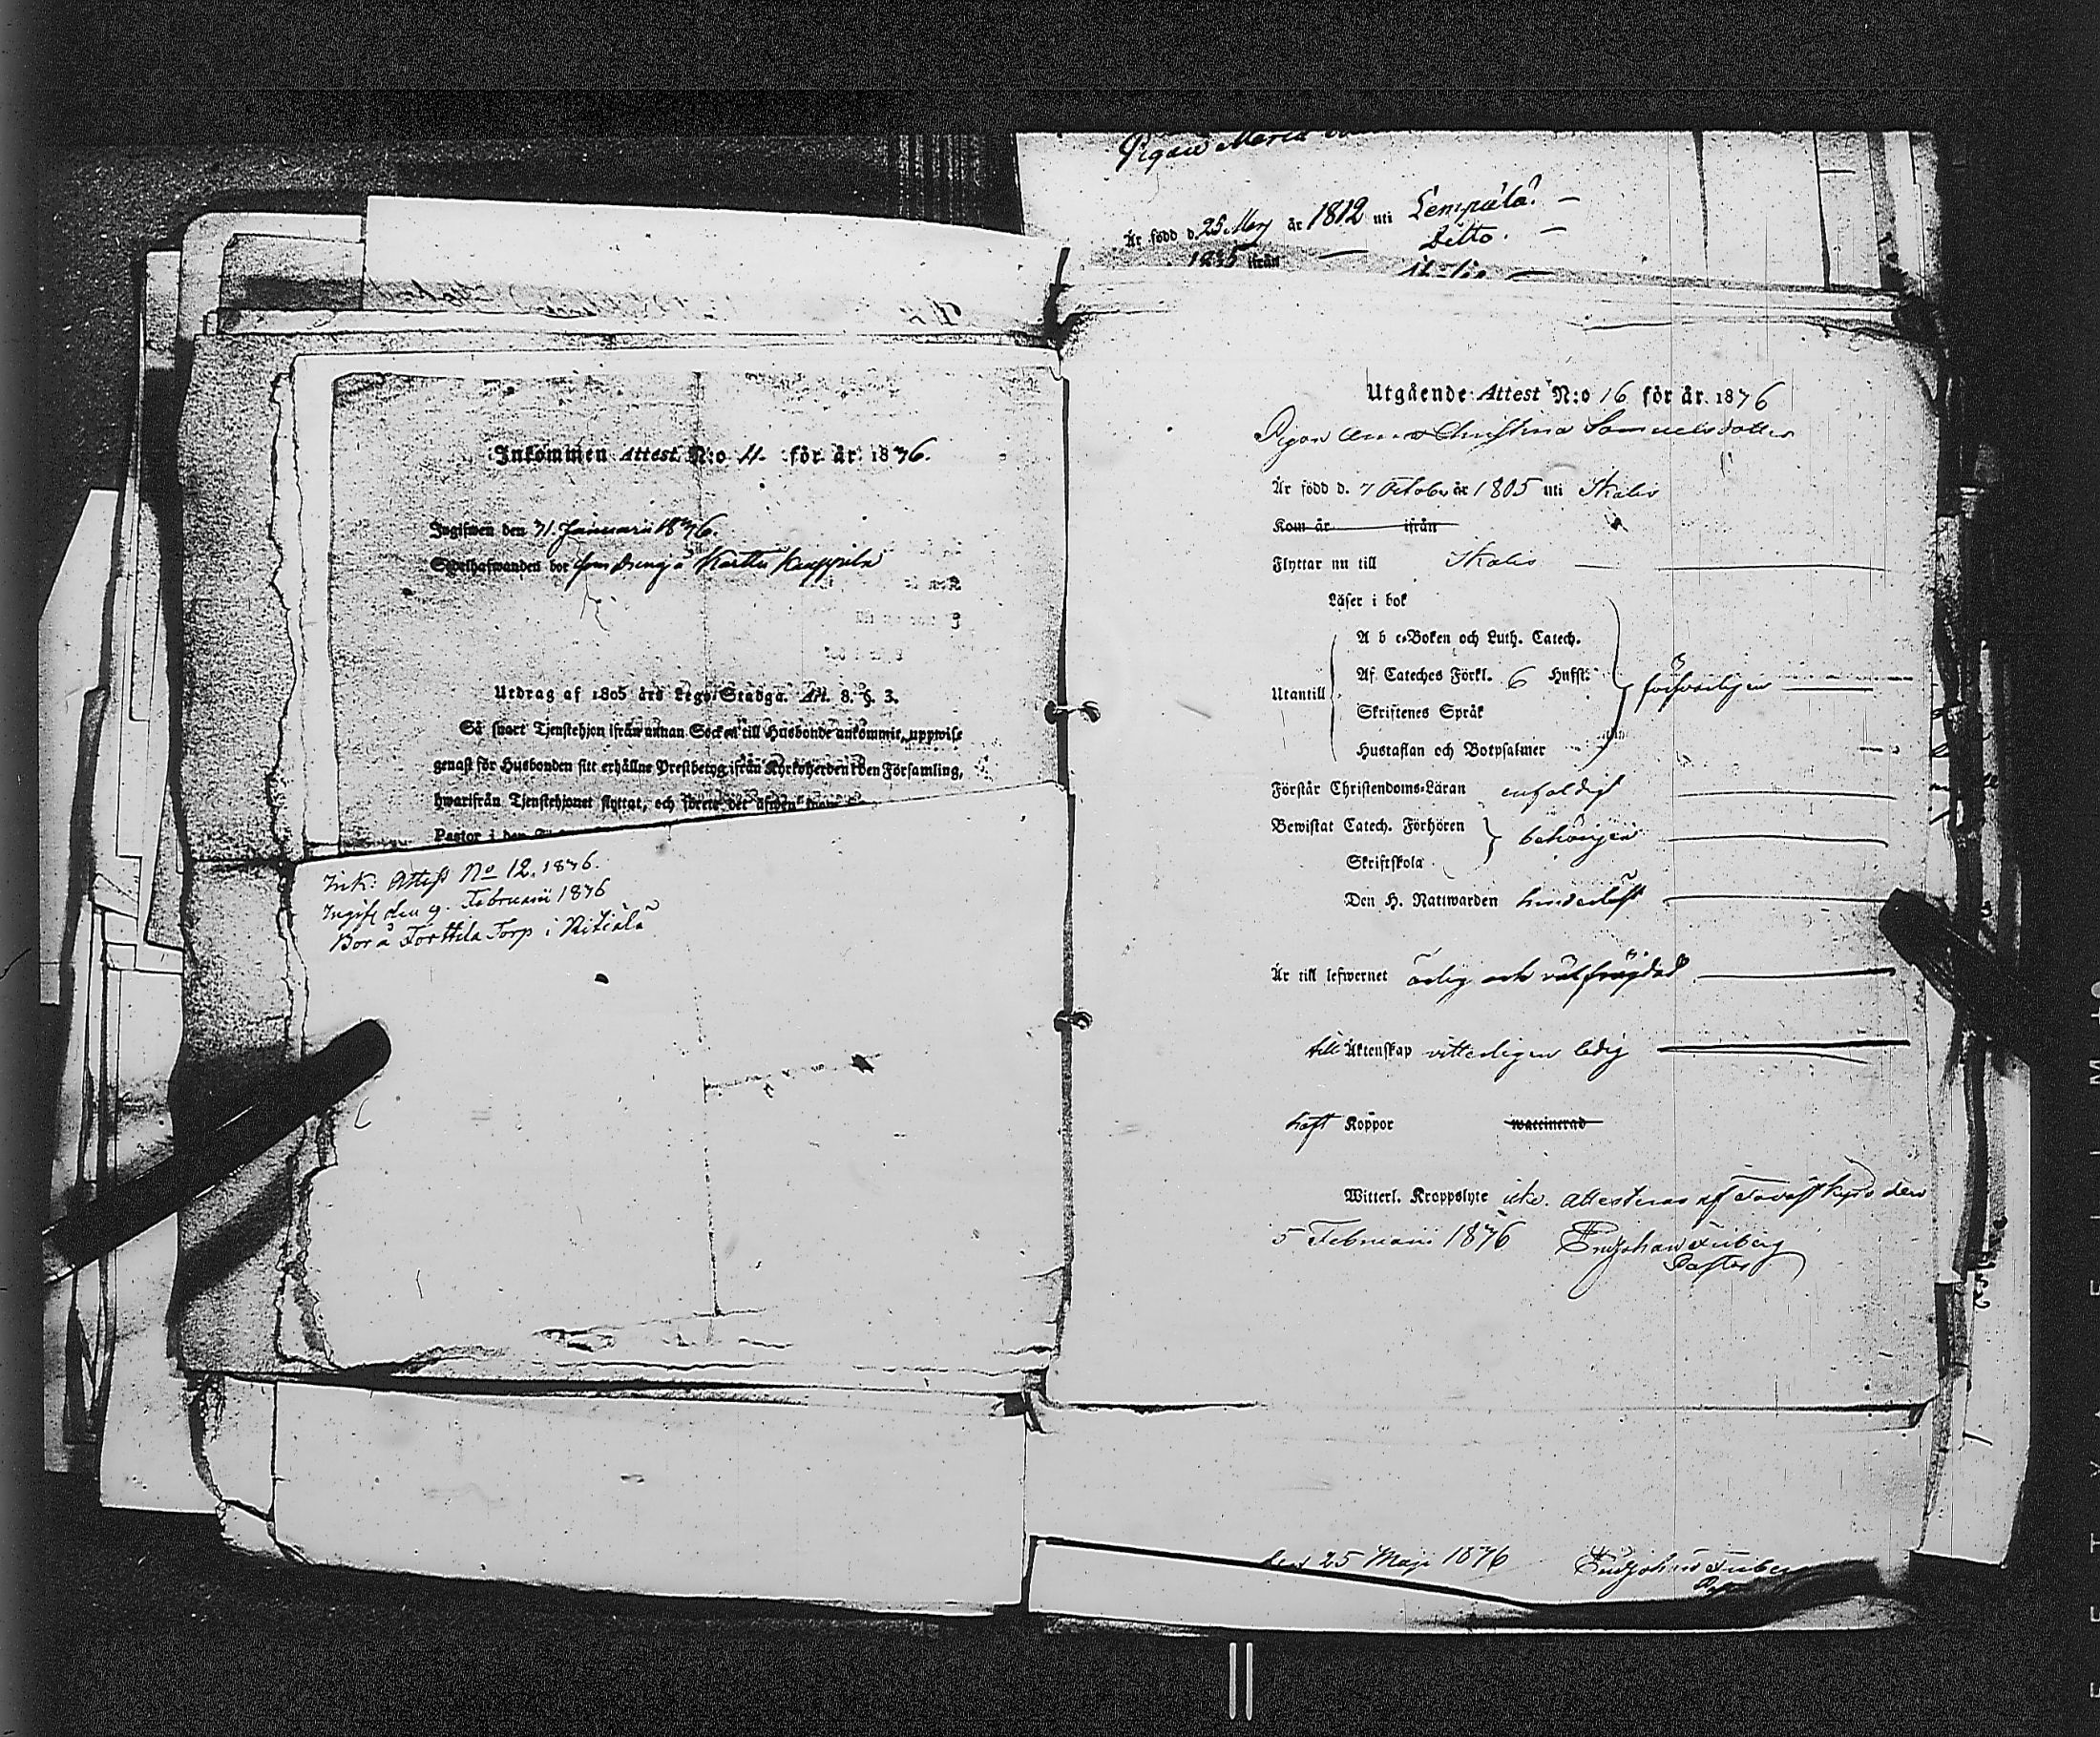 Pigan Maria
Är född d. 25 Maj år 1812 uti Lempälä. —
Ditto. —
ifrån
Inkommen Attest N:o 11. för år 1876.
Ingifwen den 31. Januarii 1876.
bor som dräng å Karttu Kauppila
Utdrag af 1805 års Lego-Stadga. Art. 8. §. 3.
Så snart Tjenstehjon ifrån annan Socken till Husbonde ankommit, uppwise
genast för Husbonden sitt erhållne Prestbetyg ifrån Kyrkoherden i den Församling,
hwarifrån Tjenstehjonet flyttat, och förete det äfwen
Pastor i den
Ink: Attest No 12. 1876.
Ingifv den 9. Februarii 1876
Bor å Torttila Torp i
Utgående Attest N:o 16 för år 1876
Pigan Anna Christina Samuelsdotter
Är född d. 7 October år 1805 uti Skalis
Kom år ifrån
Flyttar nu till Skalis
Läser i bok
Utantill
A b c-Boken och Luth. Catech.
Af Cateches Förkl. 6 Hufst.
Skriftenes Språk
Hustaflan och Botpsalmer
försvarligen
Förstår Christendoms-Läran enfaldigt
Bewistat Catech. Förhören
Skriftskola
behörigen
Den H. Nattwarden hinderlöst
Är till lefwernet ärlig och välfrägdad
till Äktenskap vitterligen ledig
haft Koppor waccinerad
Witterl. Kroppslyte icke. attesteras af den
5 Februarii 1876
Pastor
den 25 Maji 1876